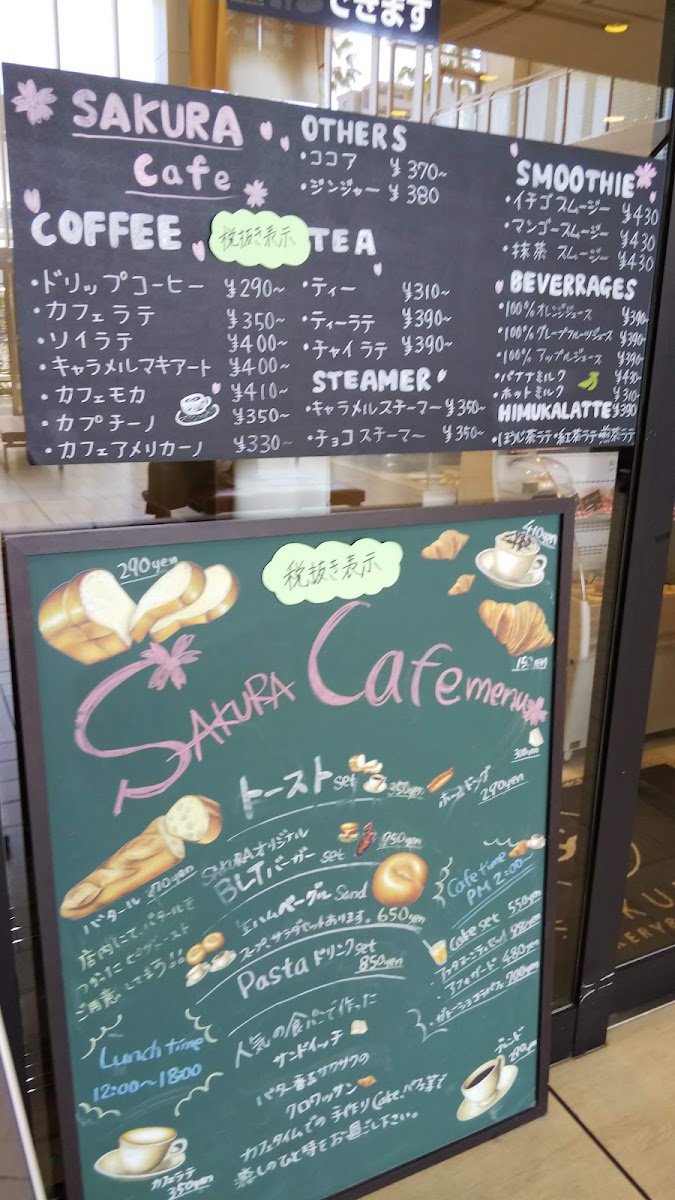 できます
SAKURA
Cafe
OTHERS
・ココア ¥370~
・ジンジャー ¥380
SMOOTHIE
・イチゴスムージー ¥430
・マンゴースムージー ¥430
・抹茶 スムージー ¥430
COFFEE
税抜き表示
・ドリップコーヒー ¥290~
・カフェラテ ¥350~
・ソイラテ ¥400~
・キャラメルマキアート ¥400~
・カフェモカ ¥410~
・カプチーノ ¥350~
・カフェアメリカーノ ¥330~
TEA
・ティー ¥310~
・ティーラテ ¥390~
・チャイラテ ¥390~
STEAMER
・キャラメルスチーマー ¥350~
・チョコスチーマー ¥350~
BEVERRAGES
・100%オレンジジュース ¥390~
・100%グレープフルーツジュース ¥390~
・100%アップルジュース ¥390~
・バナナミルク ¥430~
・ホットミルク ¥310~
HIMUKALATTE ¥390
・ほうじ茶ラテ・紅茶ラテ・煎茶ラテ
290yen
税抜き表示
410yen
SAKURA Cafe menu
300yen
トースト set 350yen
ホットドッグ
290yen
SAKURAオリジナル
BLTバーガー set 750yen
バタール 270yen
生ハムベーグル Sand
スープ、サラダセットあります。 650yen
Pasta ドリンクset
850yen
Cafe time
PM 2:00~
Cake set 550yen
アフォガード 480yen
700yen
Lunch time
12:00~1800
人気の食パンで作った
サンドイッチ
バター香るサクサクの
クロワッサン
カフェタイムでの手作りCake、パフェ等で
楽しのひと時をお過し下さい。
ブレンド
290yen
カフェラテ
350yen